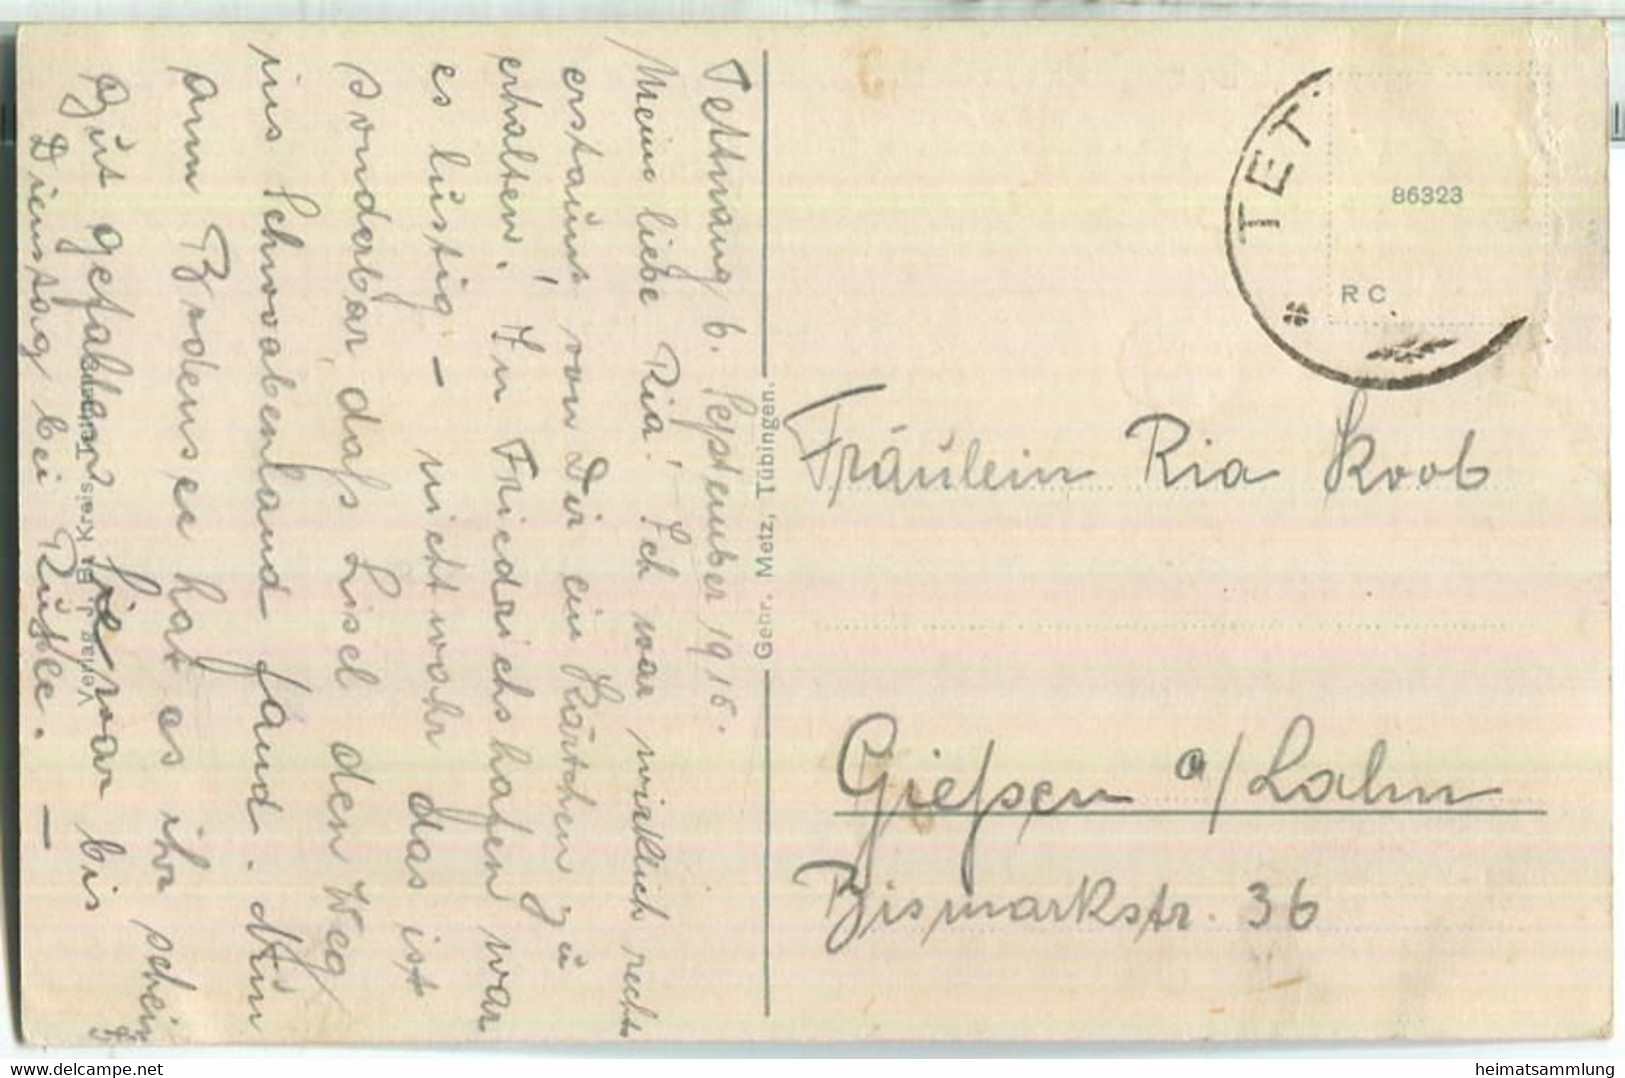 Tettnang 6. September 1916.
Meine liebe Ria! Ich war wirklich recht
erstaunt von Dir ein Kärtchen zu
erhalten! In Friedrichshafen war
es lustig – nicht wahr das ist
sonderbar daß Lisel den Weg
ins Schwabenland fand. Nun
am Bodensee hat es ihr scheints
gut gefallen sie war bis
Dienstag bei
Verlag
Kreis Tettnang
Gebr. Metz, Tübingen.
TET
86323
R C
Fräulein Ria Koob
Gießen a/Lahn
Bismarkstr. 36
delcampe.net
heimatsammlung